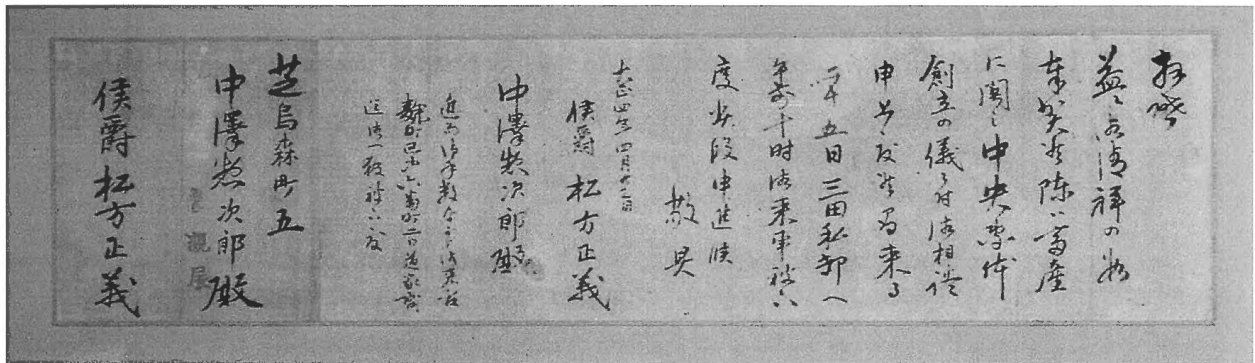 拝啓
益々御清祥の段
奉賀候陳ハ蚕産
に関し中央団体
創立の儀ニ付御相談
申上度候間来る
二十五日三田私邸へ
午前十時御来車被下
度此段申進候
敬具
大正四年四月廿二日
侯爵 松方正義
中澤惣次郎殿
追而御手数ながら御来否
麹町区 二 道家
迄御一報被下度
芝烏森町五
中澤惣次郎殿
親展
侯爵 松方正義